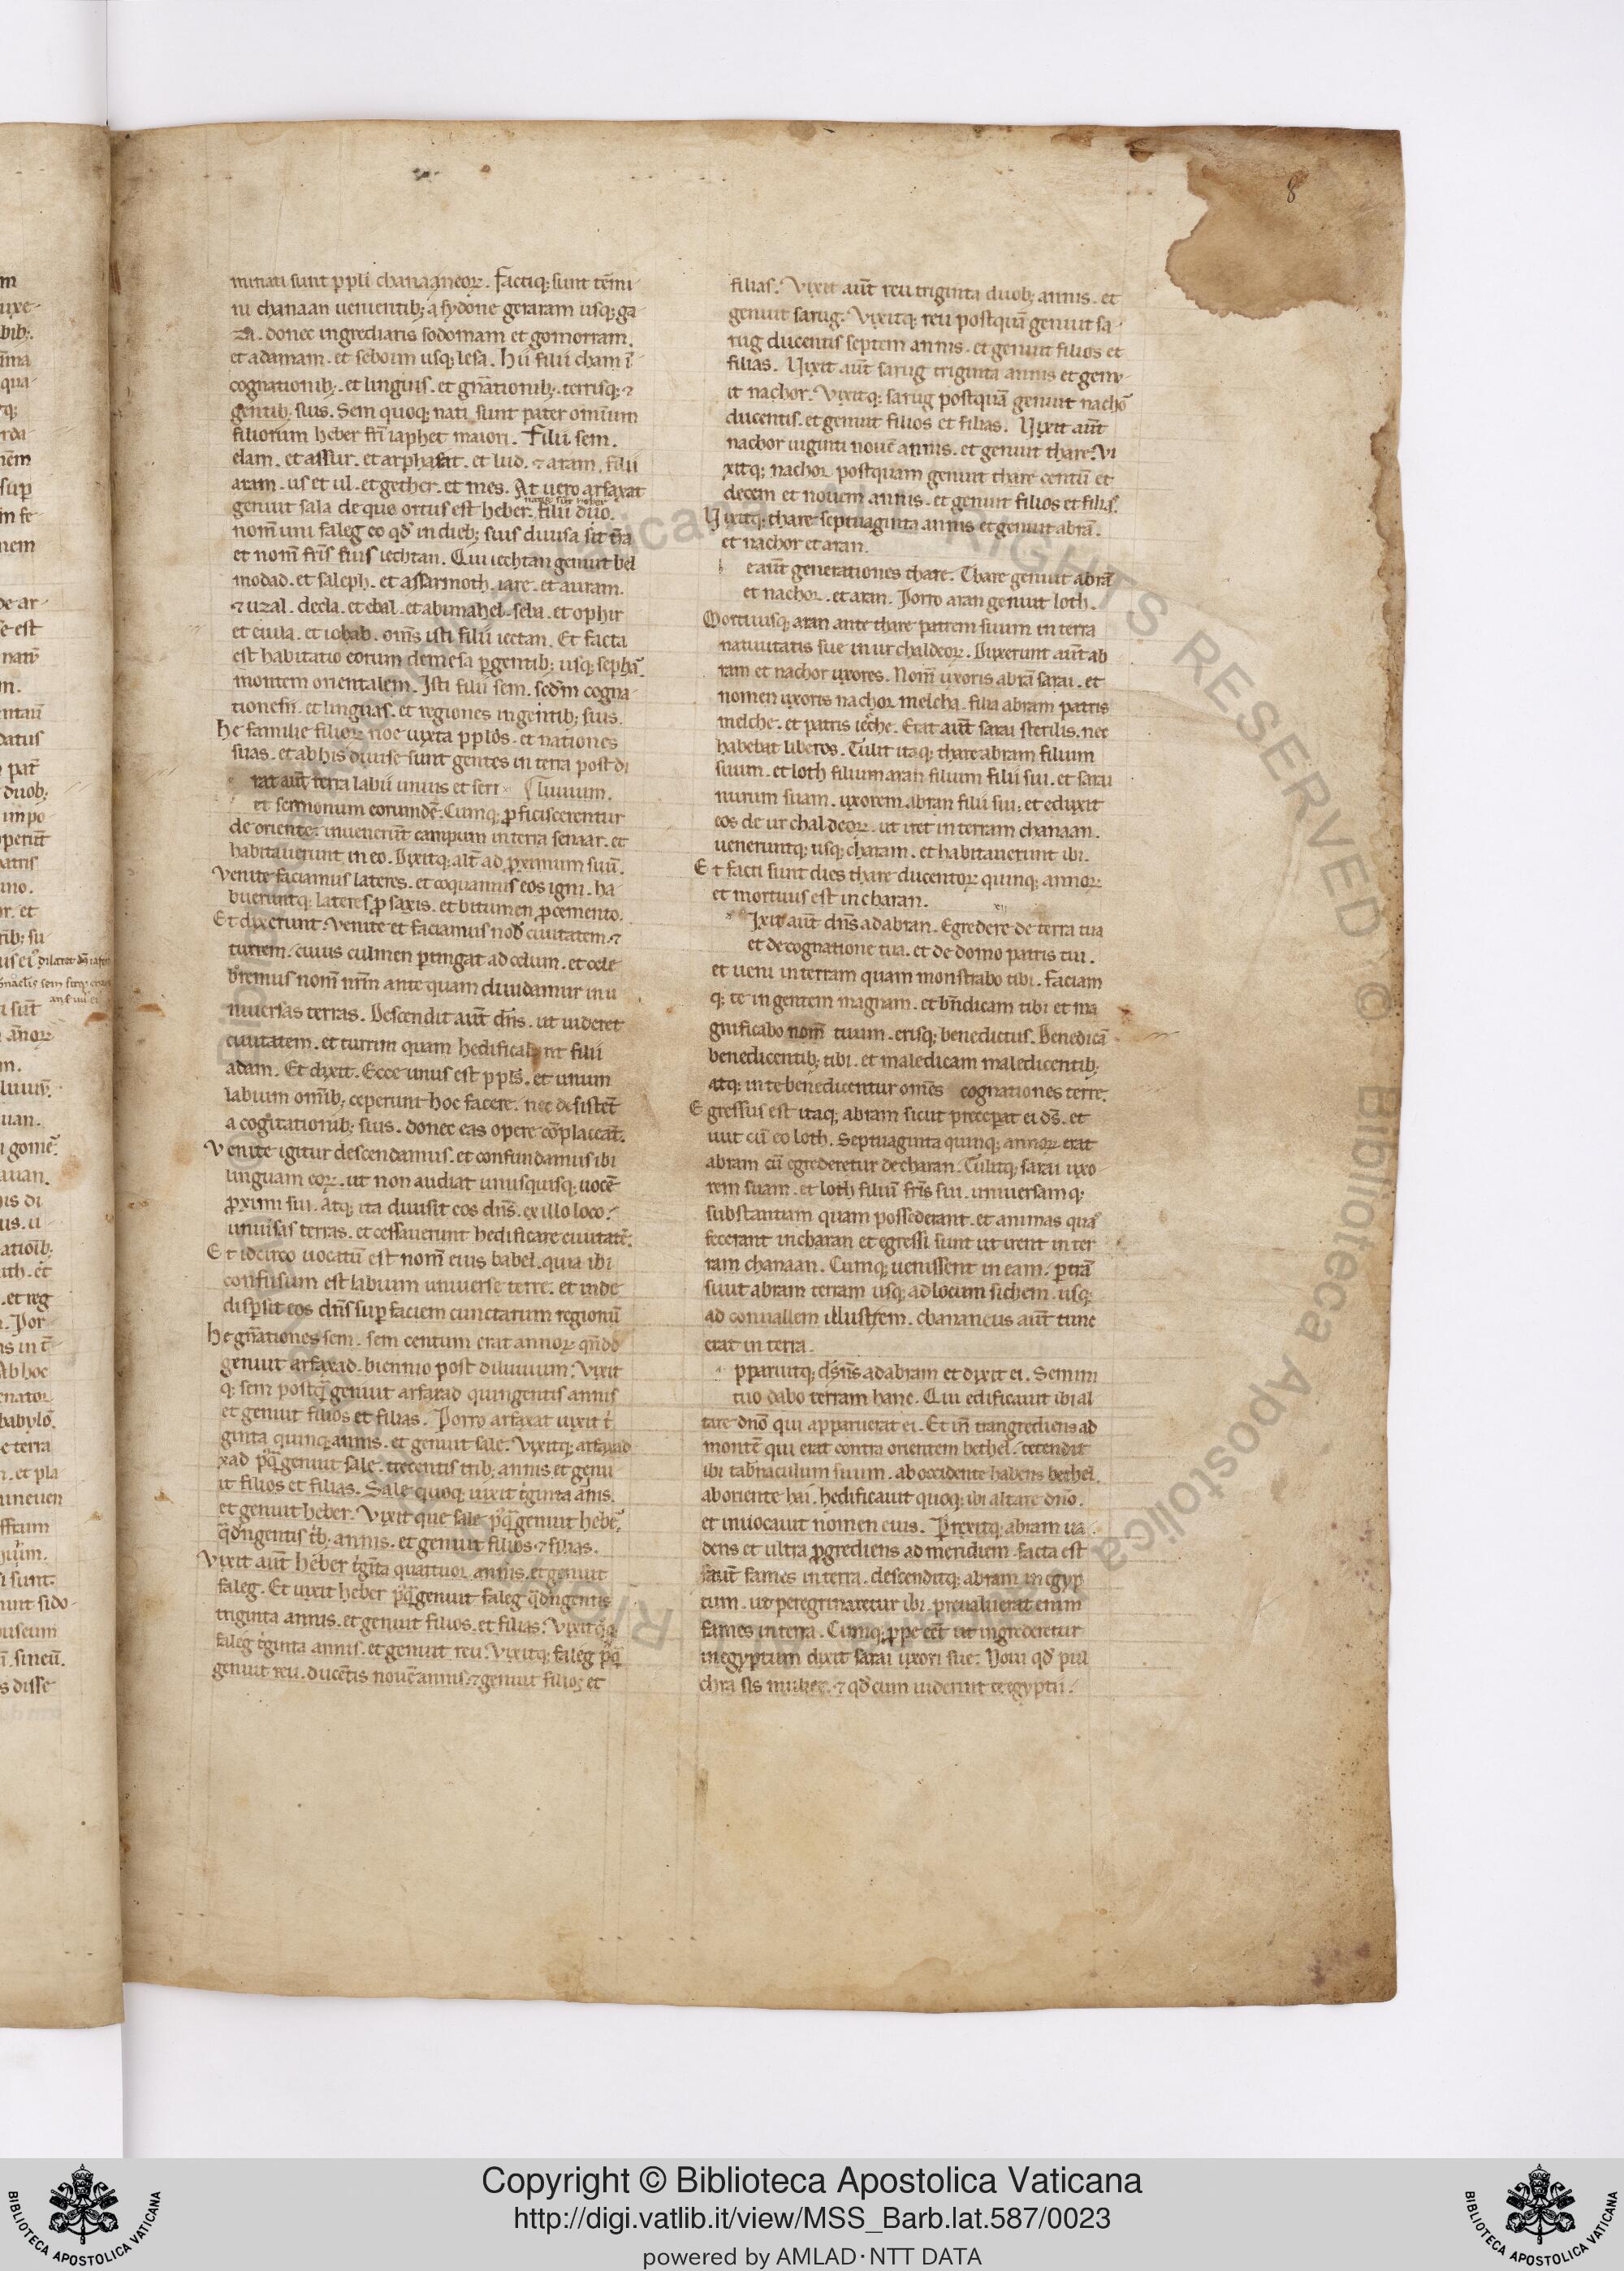 8
minati sunt ppli chananeoꝝ. Factiq; sunt t̄mi
ni chanaan uenientib; a sydone geraram usq; ga
za. donec ingrediaris sodomam et gomorram.
et adamam. et seboim usq; lesa. Hii filii cham ī
cognationib;. et linguis. et gn̄ationib;. terrisq; ⁊
gentib; suis. Sem quoq; nati sunt pater omium
filiorum heber fr̄i iaphet maiori. Filii sem.
elam. et assur. et arphaxat. et lud. ⁊ aram. filii
aram. us et ul. et gether. et mes. At uero arfaxat
genuit sala de quo ortus est heber. filii duo.
nom̄ uni faleg eo qd̓ in dieb; suis diuisa sit t̄ra
et nom̄ fr̄is eius iechtan. Qui iechtan genuit hel
modad. et saleph. et assarmoth. iare. et auram.
⁊ uzal. decla. et ebal. et abimahel. seba. et ophir
et euila. et iobab. om̄s isti filii iectan. Et facta
est habitatio eorum de mesa pgentib; usq; sephā.
montem orientalem. Isti filii sem. sedm̄ cogna
tiones. et linguas. et regiones in gentib; suis.
He familie filioꝝ noe iuxta pplōs. et nationes
suas. et ab his diuise sunt gentes in terra post di
rat aut̄ terra labii unius et ser luuium.
et sermonum eorundē. Cumq; pficiscerentur
de oriente. inuenerūt campum in terra senaar. et
habitauerunt in eo. Dixitq; alt̄ ad pximum suū.
Venite faciamus lateres. et coquamus eos igni. ha
bueruntq; lateres p saxis. et bitumen p cemento.
Et dixerunt. Venite et faciamus nob̓ ciuitatem. ⁊
turrem. cuius culmen ptingat ad celum. et cele
bremus nom̄ nr̄m ante quam diuidamur in u
niuersas terras. Descendit aut̄ dn̄s. ut uideret
ciuitatem. et turrim quam hedificabant filii
adam. Et dixit. Ecce unus est pplS. et unum
labium omīb; ceperunt hoc facere. nec desistēt
a cogitationib; suis. donec eas opere cōpleant.
Venite igitur descendamus. et confundamus ibi
linguam eoꝝ. ut non audiat unusquisq; uocē
pximi sui. Atq; ita diuisit eos dn̄s. ex illo loco.
uniu̓sas terras. et cessauerunt hedificare ciuitatē.
Et idcirco uocatū est nom̄ eius babel. quia ibi
confusum est labium uniuerse terre. et inde
dispsit eos dn̄s sup faciem cunctarum regionū
He gn̄ationes sem. sem centum erat annoꝝ qn̄do
genuit arfaxad. biennio post diluuium. Vixit
q; sem postq̄ genuit arfaxad quingentis annis
et genuit filios et filias. Porro arfaxat uixit t̓
ginta quinq; annis. et genuit sale. Vixitq; arfaxad
xad pq̄ genuit sale. trecentis trib; annis et genu
it filios et filias. Sale quoq; uixit t̓ginta an̄is.
et genuit heber. Vixit que sale pq̄ genuit hebe.
q̄d̓ngentis t̓b; annis. et genuit filios. ⁊ filias.
Vixit aut̄ heber t̓gīta quattuor annis. et genuit
faleg. Et uixit heber pq̄ genuit faleg q̄d̓ngentis
triginta annis. et genuit filios. et filias. Vixit q̄q;
faleg t̓ginta annis. et genuit reu. Vixitq; faleg pq̄
genuit reu. ducētis nouē annis. ⁊ genuit filios et
filias. Vixit aut̄ reu triginta duob; annis. et
genuit sarug. Vixitq; reu postquā genuit sa
rug ducentis septem annis. et genuit filios et
filias. Vixit aut̄ sarug triginta annis et genu
it nachor. Vixitq; sarug postquā genuit nachō
ducentis. et genuit filios et filias. Vixit aut̄
nachor uiginti nouē annis. et genuit thare. Vi
xitq; nachor postquam genuit thare centū et
decem et nouem annis. et genuit filios et filias.
Vixitq; thare septuaginta annis et genuit abrā.
et nachor et aran.
e aut̄ generationes thare. Thare genuit abrā
et nachor. et aran. Porro aran genuit loth.
Mortuusq; aran ante thare patrem suum in terra
natiuitatis sue in ur chaldeoꝝ. Duxerunt aut̄ ab
ram et nachor uxores. Nom̄ uxoris abrā sarai. et
nomen uxoris nachor melcha. filia abram patris
melche. et patris iesche. Erat aut̄ sarai sterilis. nec
habebat liberos. Tulit itaq; thare abram filium
suum. et loth filium aran filium filii sui. et sarai
nurum suam. uxorem abran filii sui. et eduxit
eos de ur chaldeoꝝ. ut iret in terram chanaan.
ueneruntq; usq; charam. et habitauerunt ibi.
Et facti sunt dies thare ducentoꝝ quinq; annoꝝ
et mortuus est in charan.
Ixit aut̄ dn̄s ad abran. Egredere de terra tua
et de cognatione tua. et de domo patris tui.
et ueni in terram quam monstrabo tibi. Faciam
q; te in gentem magnam. et bn̄dicam tibi et ma
gnificabo nom̄ tuum. erisq; benedictus. Benedicā
benedicentib; tibi. et maledicam maledicentib;
atq; in te benedicentur om̄es cognationes terre.
Egressus est itaq; abram sicut precepat ei dS. et
iuit cū eo loth. Septuaginta quinq; annoꝝ erat
abram cū egrederetur de charan. Tulitq; sarai uxo
rem suam. et loth filiū fr̄is sui. uniuersamq;
substantiam quam possederant. et animas quas
fecerant in charan et egressi sunt ut irent in ter
ram chanaan. Cumq; uenissent in eam. ptrā
siuit abram terram usq; ad locum sichem. usq;
ad conuallem illustrem. chananeus aut̄ tunc
erat in terra.
pparuitq; dn̄s ad abram et dixit ei. Semini
tuo dabo terram hanc. Qui edificauit ibi al
tare dn̄o qui apparuerat ei. Et īn trangrediens ad
montē qui erat contra orientem bethel. tetendit
ibi tab̓naculum suum. ab occidente habens bethel.
ab oriente hai. hedificauit quoq; ibi altare dn̄o.
et inuocauit nomen eius. Prexitq; abram ua
dens et ultra pgrediens ad meridiem. facta est
aut̄ fames in terra. descenditq; abram in egyp
tum. ut peregrinaretur ibi. preualuerat enim
fames in terra. Cumq; ppe eēt ut ingrederetur
in egyptum dixit sarai uxori sue. Noui qd̓ pul
chra sis mulier. ⁊ qd̓ cum uiderint te egyptii.
Copyright © Biblioteca Apostolica Vaticana
http://digi.vatlib.it/view/MSS_Barb.lat.587/0023
powered by AMLAD·NTT DATA
BIBLIOTECA APOSTOLICA VATICANA
BIBLIOTECA APOSTOLICA VATICANA